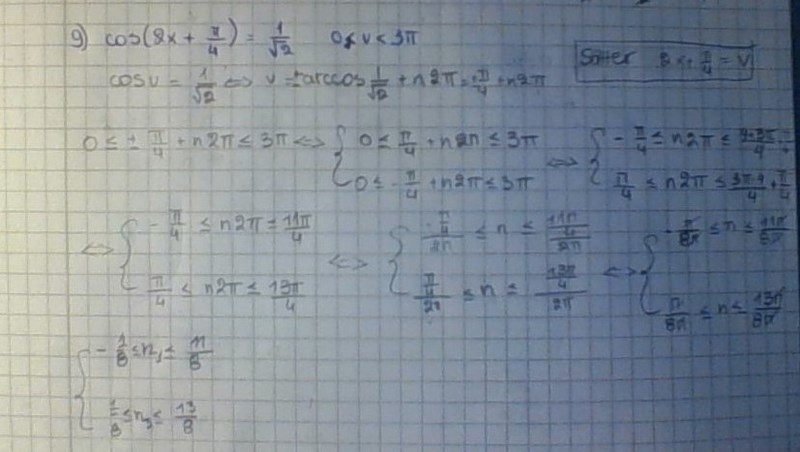 9) cos(2x + π/4) = 1/√2 0 ≤ v < 3π
Sätter 2x + π/4 = v
cos v = 1/√2 <=> v = ±arccos 1/√2 + n2π = ±π/4 + n2π
0 ≤ ± π/4 + n2π ≤ 3π <=> { 0 ≤ π/4 + n2π ≤ 3π <=> { -π/4 ≤ n2π ≤
0 ≤ -π/4 + n2π ≤ 3π π/4 ≤ n2π ≤ 3π·4/4 + π/4
<=> { -π/4 ≤ n2π ≤ 11π/4 <=> { -π/4/2π ≤ n ≤ 11π/4/2π <=> { -π/8π ≤ n ≤ 11π/8π
π/4 ≤ n2π ≤ 13π/4 π/4/2π ≤ n ≤ 13π/4/2π π/8π ≤ n ≤ 13π/8π
{ -1/8 ≤ n₁ ≤ 11/8
1/8 ≤ n₂ ≤ 13/8